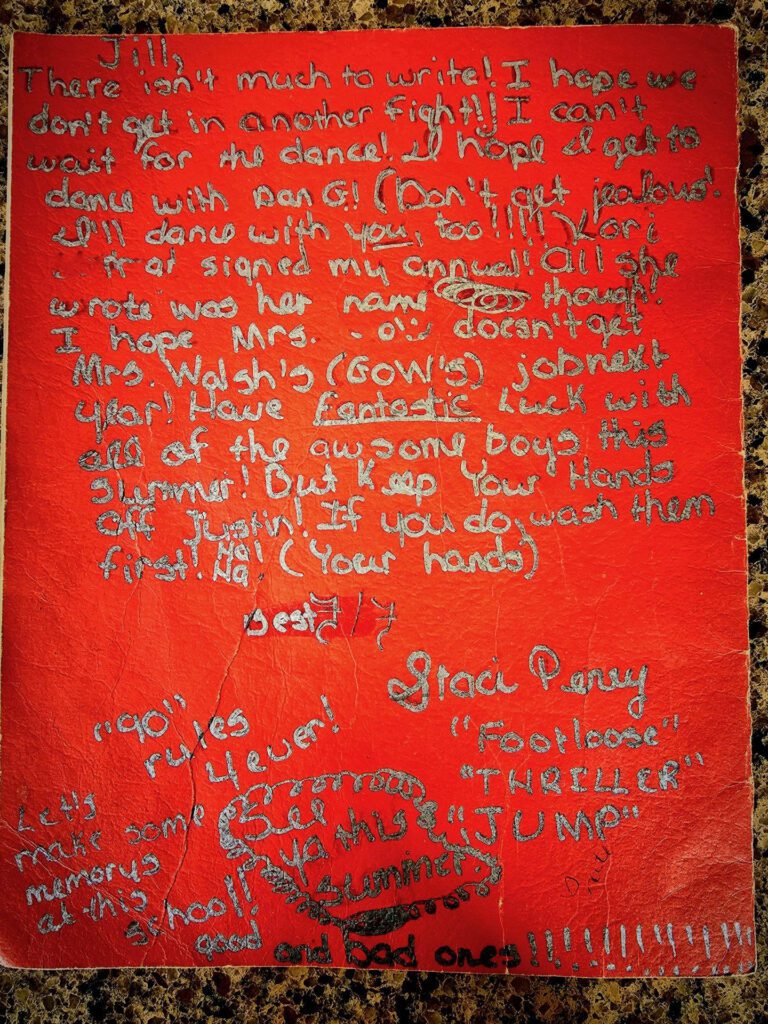 Jill,
There isn't much to write! I hope we
don't get in another fight!! I can't
wait for the dance! I hope I get to
dance with Dan G! (Don't get jealous!
I'll dance with you, too!!!!! Kori
signed my annual! All she
wrote was her name though!
I hope Mrs. doesn't get
Mrs. Walsh's (GOW'S) job next
year! Have fantastic Luck with
all of the awsome boys this
summer! But Keep Your Hands
off Justin! If you do, wash them
first! Ha! Ha! (Your hands)
Best
Staci Perey
"90"
rules
4ever!
"Footloose"
"THRILLER"
"JUMP"
See
ya this
summer
Let's
make some
memorys
at this
school!!
good
and bad ones!!!!!!!!!!!!!!